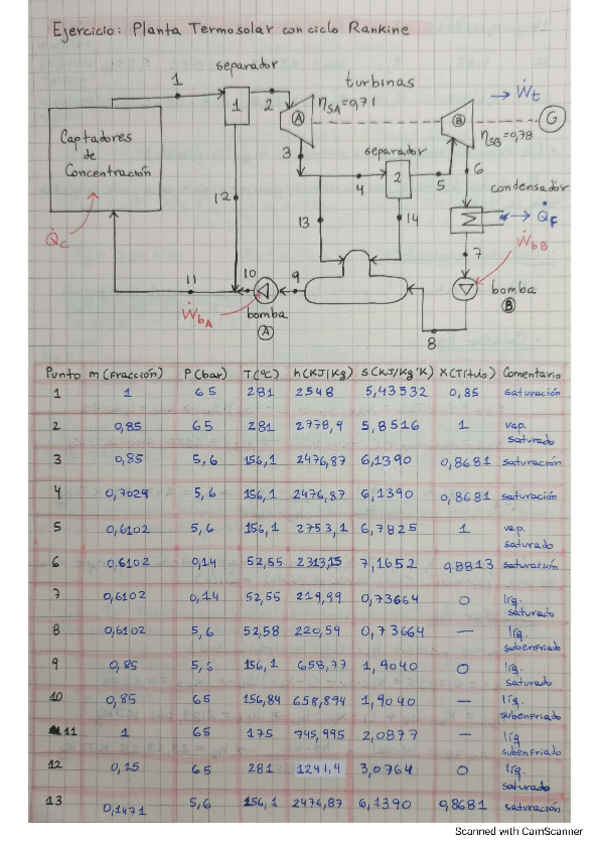 Ejercicio: Planta Termosolar con ciclo Rankine
separador
turbinas
1
1
2
ηSA=0,71
A
Ẇt
B
G
ηSB=0,78
Captadores
de
Concentración
3
separador
2
4
5
6
condensador
12
13
14
Q̇F
Q̇C
7
ẆbB
11
10
9
ẆbA
bomba
A
bomba
B
8
Punto m(Fracción) P(bar) T(ºC) h(KJ/Kg) s(KJ/Kg·K) X(Título) Comentario
1 1 65 281 2548 5,43532 0,85 saturación
2 0,85 65 281 2778,9 5,8516 1 vap. saturado
3 0,85 5,6 156,1 2476,87 6,1390 0,8681 saturación
4 0,7029 5,6 156,1 2476,87 6,1390 0,8681 saturación
5 0,6102 5,6 156,1 2753,1 6,7825 1 vap. saturado
6 0,6102 0,14 52,55 2313,15 7,1652 0,8813 saturación
7 0,6102 0,14 52,55 219,99 0,73664 0 líq. saturado
8 0,6102 5,6 52,58 220,59 0,73664 — líq. subenfriado
9 0,85 5,6 156,1 658,77 1,9040 0 líq. saturado
10 0,85 65 156,84 658,894 1,9040 — líq. subenfriado
11 1 65 175 745,995 2,0877 — líq subenfriado
12 0,15 65 281 1241,4 3,0764 0 líq. saturado
13 0,1471 5,6 156,1 2476,87 6,1390 0,8681 saturación
Scanned with CamScanner